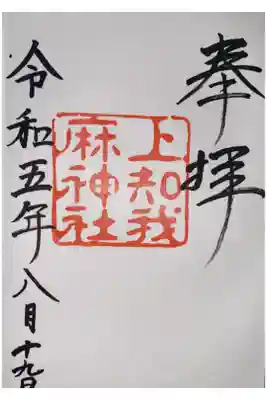 奉拝
上知我
麻神社
令和五年八月十九日